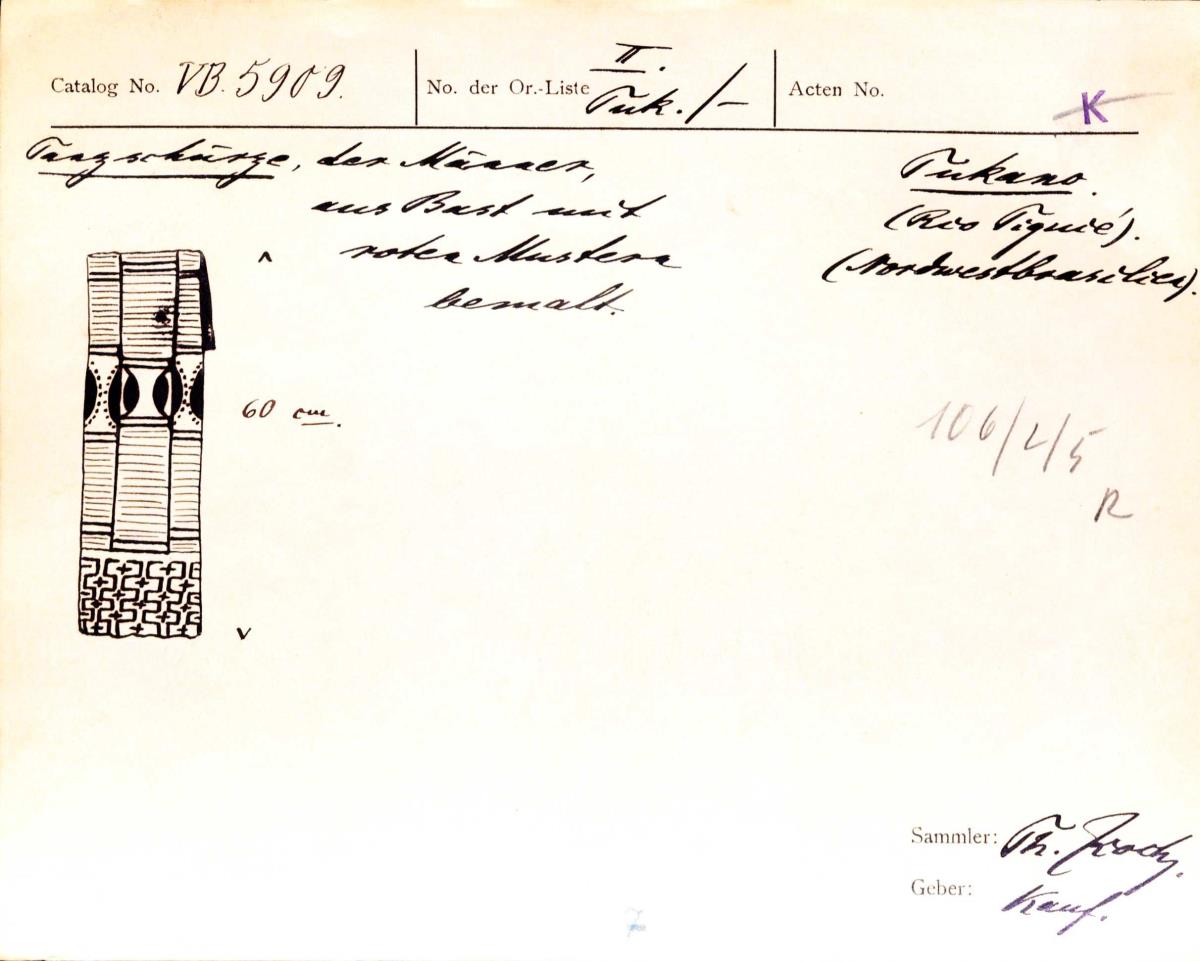 Catalog No. VB. 5909.
No. der Or.-Liste II.
Tuk. /—
Acten No.
K
Tanzschürze, der Männer,
aus Bast mit
roten Mustern
bemalt.
Tukano.
(Rio Tiquié).
(Nordwestbrasilien).
60 cm.
106/2/5
R
Sammler: Th. Koch.
Geber: Kauf.
7